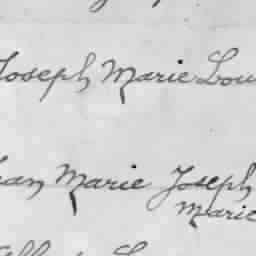 Joseph Marie Lou
ean Marie Joseph
Marie